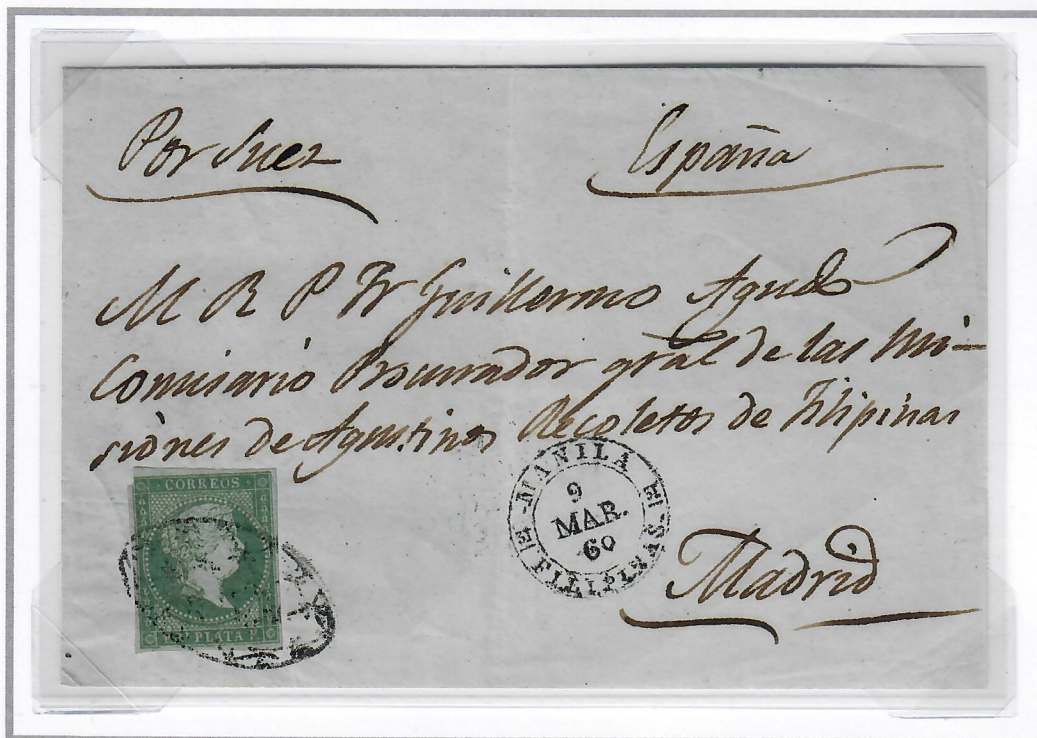 Por Suez
España
M R P Fr Guillermo Agudo
Comisario Procurador gral de las Mi-
siones de Agustinos Recoletos de Filipinas
CORREOS
PLATA F.
MANILA
9
MAR.
60
FILIPINAS
Madrid